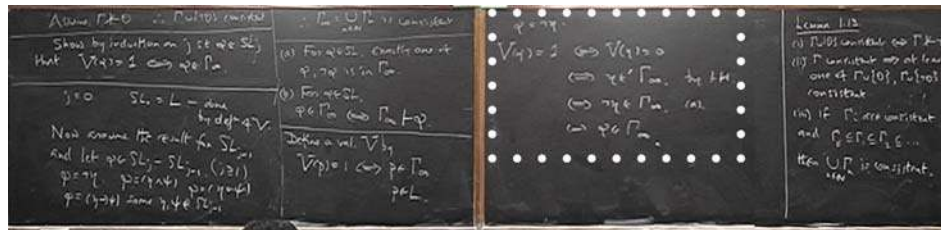 Assume Γ⊬θ ∴ Γ∪{¬θ} consistent
Show by induction on j st φ∈SL_j
that V(φ)=1 ⟺ φ∈Γ∞.
j=0 SL₀ = L – done
by defn of V.
Now assume the result for SL_{j-1}
and let φ∈SL_j - SL_{j-1} (j≥1)
φ=¬η, φ=(η∧ψ) φ=(η→ψ)
φ=(η→ψ) some η,ψ∈SL_{j-1}
∴ Γ∞ = ∪ Γn is consistent
n∈N
(a) For φ∈SL, exactly one of
φ, ¬φ is in Γ∞.
(b) For φ∈SL,
φ∈Γ∞ ⟺ Γ∞ ⊢ φ.
Define a val. V by
V(p)=1 ⟺ p∈Γ∞
p∈L.
φ = ¬η.
V(φ)=1 ⟺ V(η)=0
⟺ η∉Γ∞, by IH
⟺ ¬η∈Γ∞, (a)
⟺ φ∈Γ∞.
Lemma 1.13
(i) Γ∪{θ} consistent ⟺ Γ⊬
(ii) Γ consistent ⟹ at least
one of Γ∪{θ}, Γ∪{¬θ}
consistent
(iii) if Γi are consistent
and Γ0⊆Γ1⊆Γ2⊆...
then ∪ Γn is consistent.
n∈N